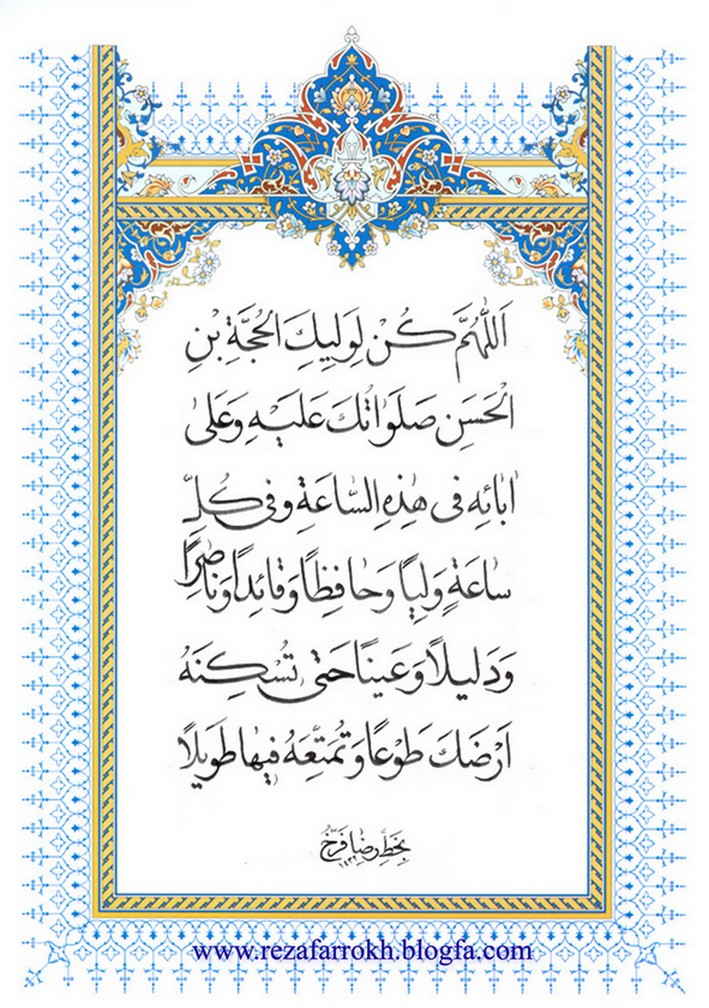 اَللّٰهُمَّ كُنْ لِوَلِيِكَ الْحُجَّةِ بْنِ
الْحَسَنِ صَلَوٰاتُكَ عَلَيْهِ وَعَلىٰ
اٰبٰائِهِ فى هٰذِهِ السّٰاعَةِ وَفى كُلِّ
سٰاعَةٍ وَلِيًا وَحٰافِظًا وَقٰائِدًا وَنٰاصِرًا
وَدَليلًا وَعَيْنًا حَتىّٰ تُسْكِنَهُ
اَرْضَكَ طَوْعًا وَتُمَتِّعَهُ فيهٰا طَويلًا
بخطّ رضا فرّخ
www.rezafarrokh.blogfa.com